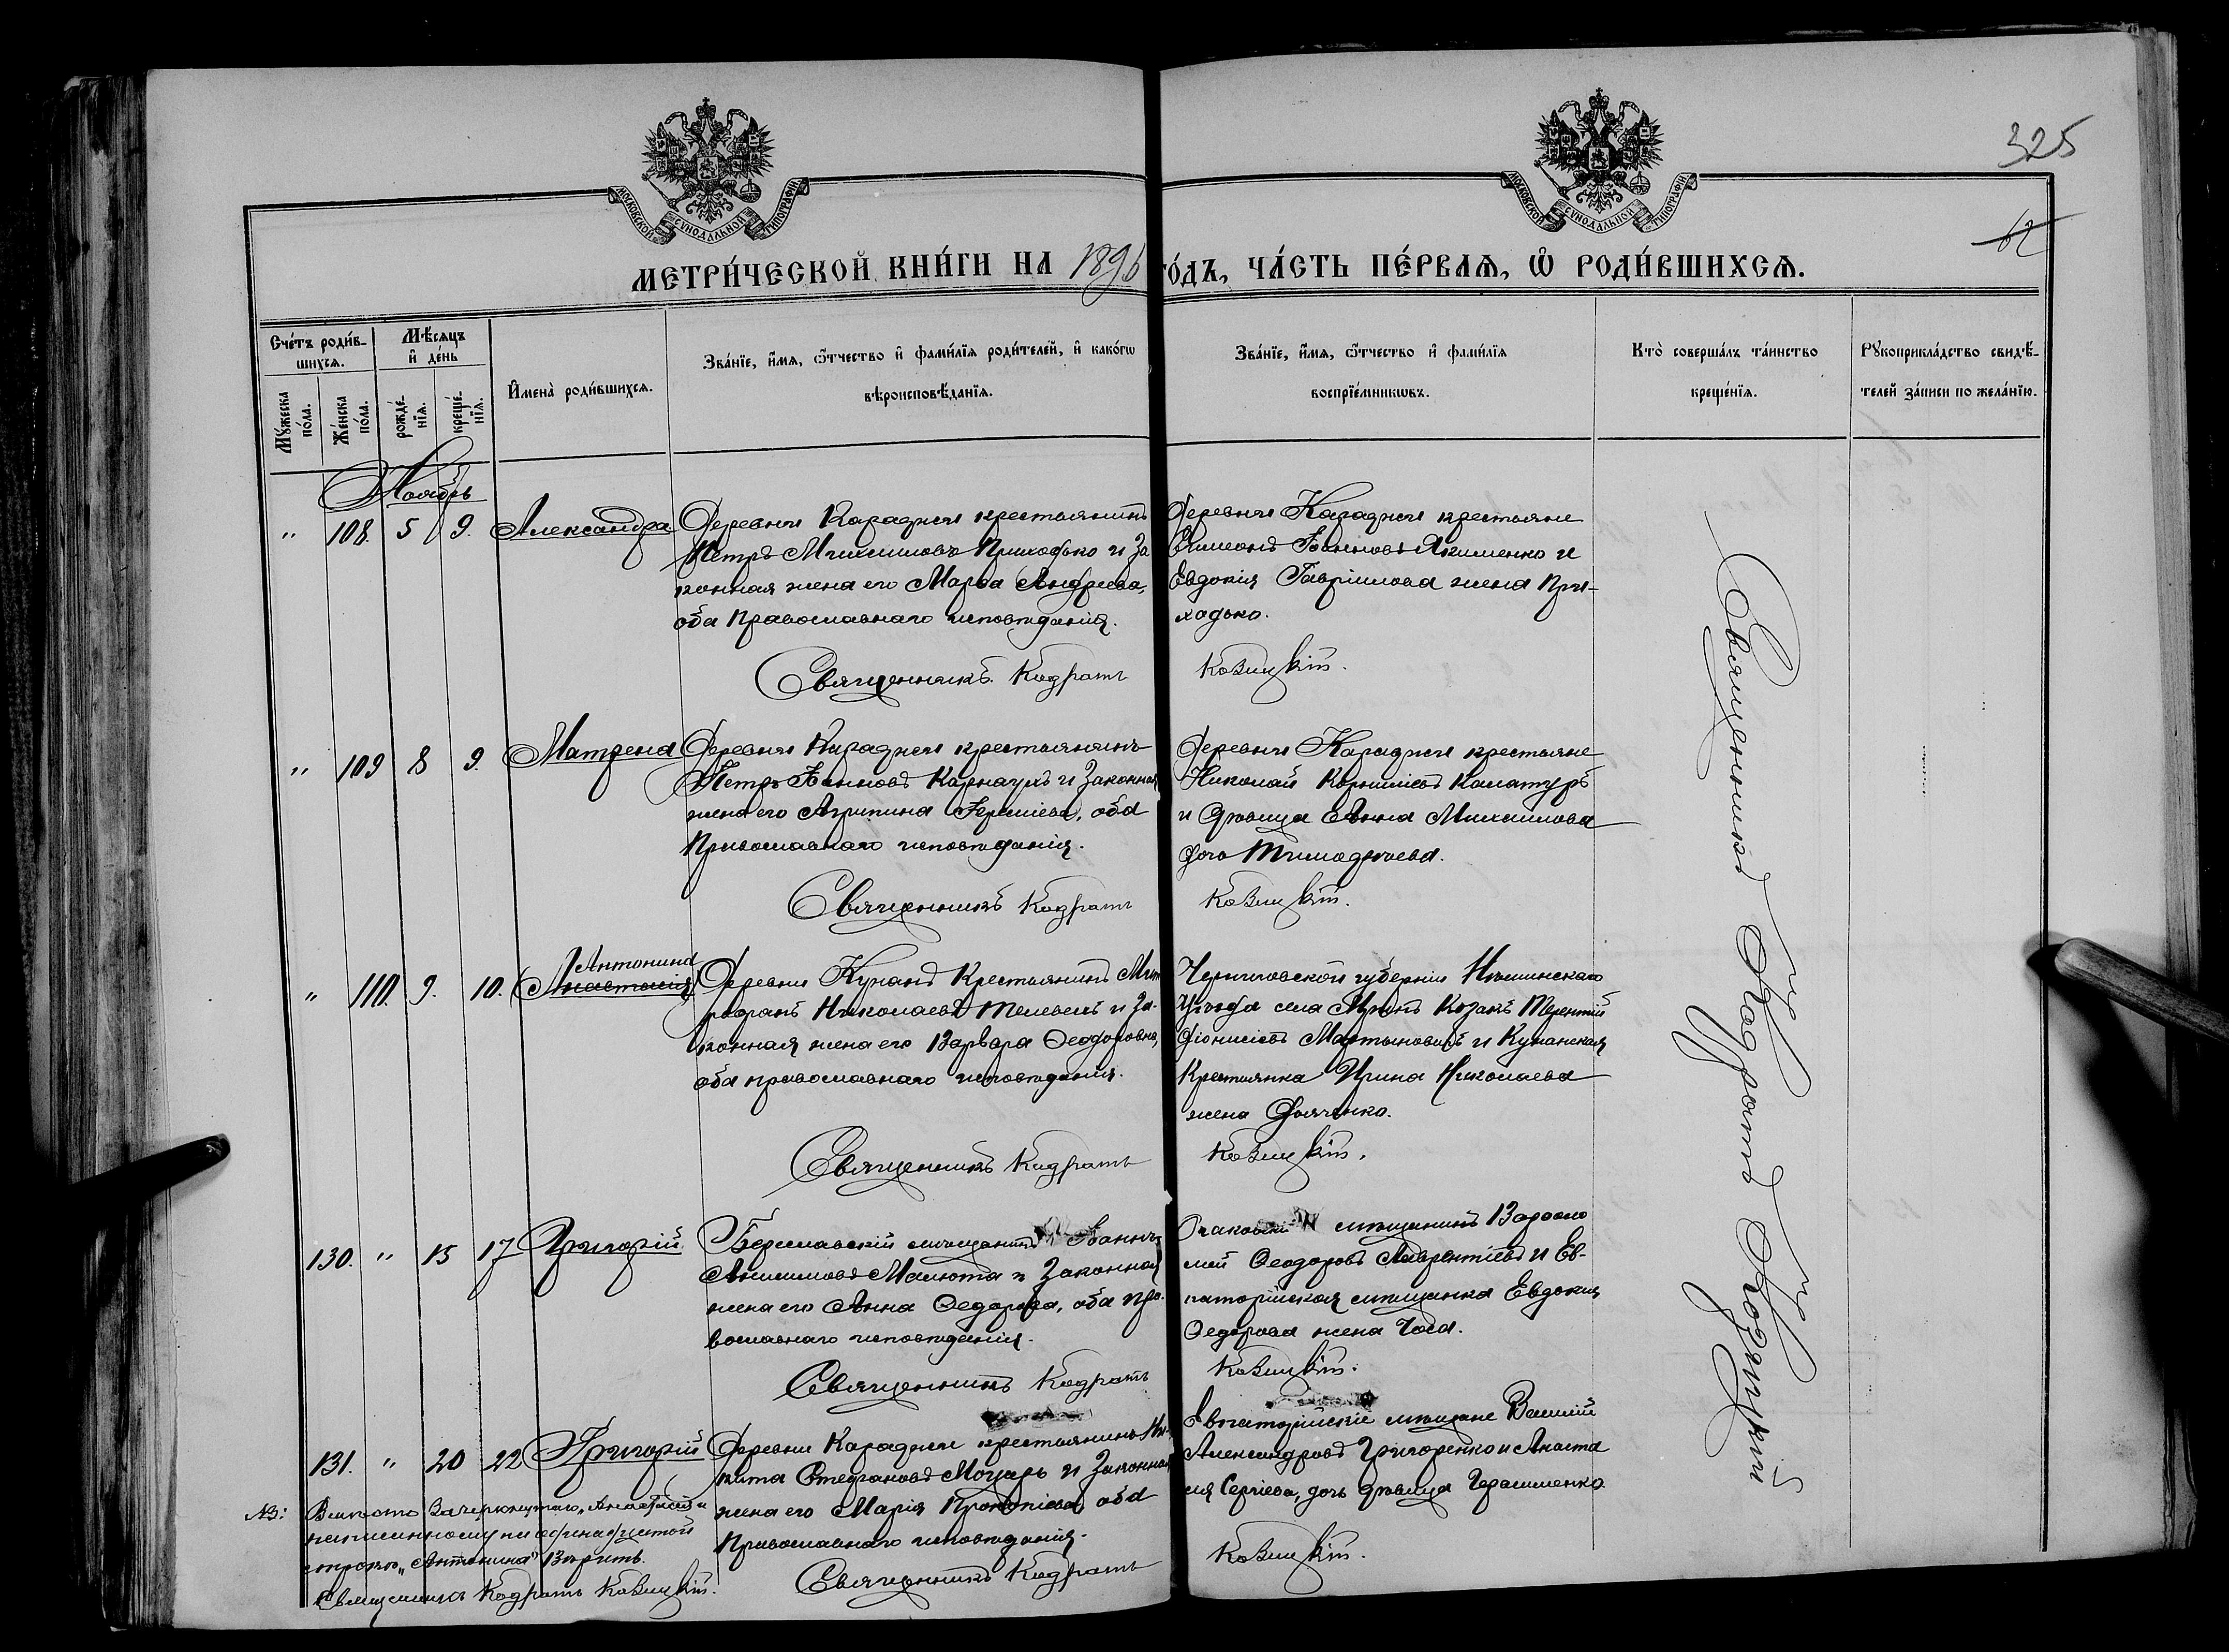 325
62
МОСКОВСКОЙ СѴНОДАЛЬНОЙ ТИПОГРАФІИ
МОСКОВСКОЙ СѴНОДАЛЬНОЙ ТИПОГРАФІИ
МЕТРИ́ЧЕСКОЙ КНИ́ГИ НА 1896 ГО́ДЪ, ЧА́СТЬ ПЕ́РВАѦ, Ѽ РОДИ́ВШИХСѦ.
Сче́тъ роди́в-
шихсѧ.
Мѣ́сѧцъ
и҆ де́нь
Мꙋ́жеска по́ла.
Же́нска по́ла.
рожде́-нїѧ.
креще́-нїѧ.
И҆мена̀ роди́вшихсѧ.
Зва́нїе, и҆́мѧ, ѻ҆́тчество и҆ фами́лїѧ роди́телей, и҆ како́гѡ
вѣроисповѣ́данїѧ.
Зва́нїе, и҆́мѧ, ѻ҆́тчество и҆ фами́лїѧ
воспрїе́мникѡвъ.
Кто̀ соверша́лъ та́инство
креще́нїѧ.
Рꙋкоприкла́дство свидѣ́-
телей за́писи по жела́нїю.
Ноябрь
" 108. 5 9. Александра
Деревни Караджи крестьянинъ
Петръ Михаиловъ Приходько и за
конная жена его Марѳа Андреева,
оба Православнаго исповѣданія.
Священникъ Кодратъ
Деревни Караджи крестьяне
Симеонъ Іоанновъ Якименко и
Евдокія Гавріилова жена При-
ходько.
Козицкій.
" 109 8 9. Матрена
Деревни Караджи крестьянинъ
Петръ Іоанновъ Карнаухъ и законная
жена его Агрипина Іереміева, оба
Православнаго исповѣданія.
Священникъ Кодратъ
Деревни Караджи крестьяне
Николай Корниліевъ Калатуръ
и дѣвица Анна Михаилова
дочь
Козицкій.
" 110. 9. 10. Антонина
Анастасія
Деревни Кунанъ Крестьянинъ Мит
рофанъ Николаевъ и за-
конная жена его Варвара Ѳеодоровна,
оба православнаго исповѣданія.
Священникъ Кодратъ
Черниговской губерніи Нѣжинскаго
уѣзда села Мринъ Козакъ Терентій
Діонисіевъ Мартыновичъ и Кунанская
Крестьянка Ирина Николаева
жена Дьяченко.
Козицкій.
130. " 15 17 Григорій
Бериславскій мѣщанинъ Іоаннъ
Анисимовъ Малюта и законная
жена его Анна Ѳедорова, оба пра-
вославнаго исповѣданія.
Священникъ Кодратъ
Очаковскій мѣщанинъ Варѳоло
мей Ѳеодоровъ Лаврентіевъ и Ев-
паторійская мѣщанка Евдокія
Ѳедорова жена
Козицкій.
131. " 20 22 Григорій
Деревни Караджи крестьянинъ Ни-
кита Стефановъ Моцарь и законная
жена его Марія Прокопіева, оба
Православнаго исповѣданія.
Священникъ Кодратъ
Евпаторійскіе мѣщане Василій
Александровъ Григоренко и Анаста
сія Сергіева, дочь дѣвица Герасименко.
Козицкій.
NB: Вмѣсто зачеркнутаго „Анастасія"
написанному
строкѣ „Антонина" вѣрить.
Священникъ Кодратъ Козицкій.
Священникъ Кодратъ Козицкій